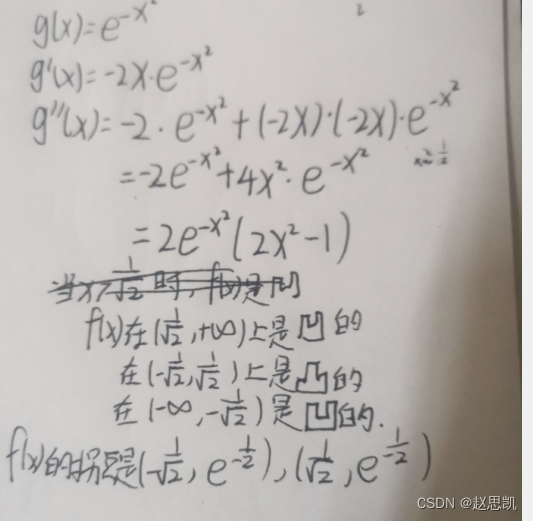 g(x)=e^{-x^2}
g'(x)=-2x·e^{-x^2}
g''(x)=-2·e^{-x^2}+(-2x)·(-2x)·e^{-x^2}
=-2e^{-x^2}+4x^2·e^{-x^2}
=2e^{-x^2}(2x^2-1)
当x>\frac{1}{\sqrt{2}}时,f(x)是凹
f(x)在(\frac{1}{\sqrt{2}},+∞)上是凹的
在(-\frac{1}{\sqrt{2}},\frac{1}{\sqrt{2}})上是凸的
在(-∞,-\frac{1}{\sqrt{2}})是凹的.
f(x)的拐点是(-\frac{1}{\sqrt{2}},e^{-\frac{1}{2}}),(\frac{1}{\sqrt{2}},e^{\frac{1}{-2}})
CSDN @赵思凯